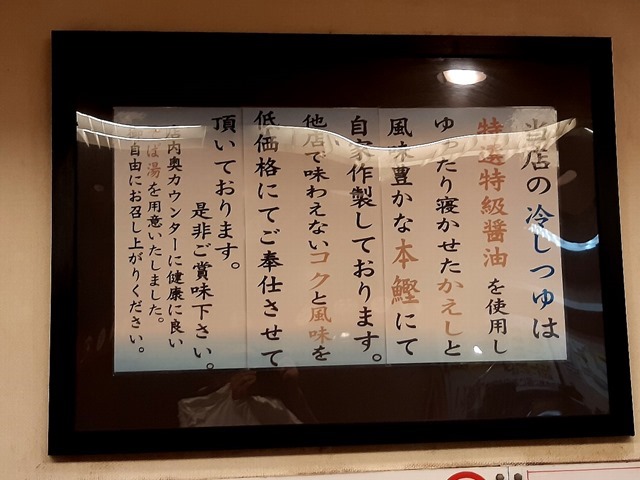 当店の冷しつゆは
特選特級醤油を使用し
ゆったり寝かせたかえしと
風味豊かな本鰹にて
自家作製しております。
他店で味わえないコクと風味を
低価格にてご奉仕させて
頂いております。
是非ご賞味下さい。
店内奥カウンターに健康に良い
そば湯を用意いたしました。
ご自由にお召し上がりください。